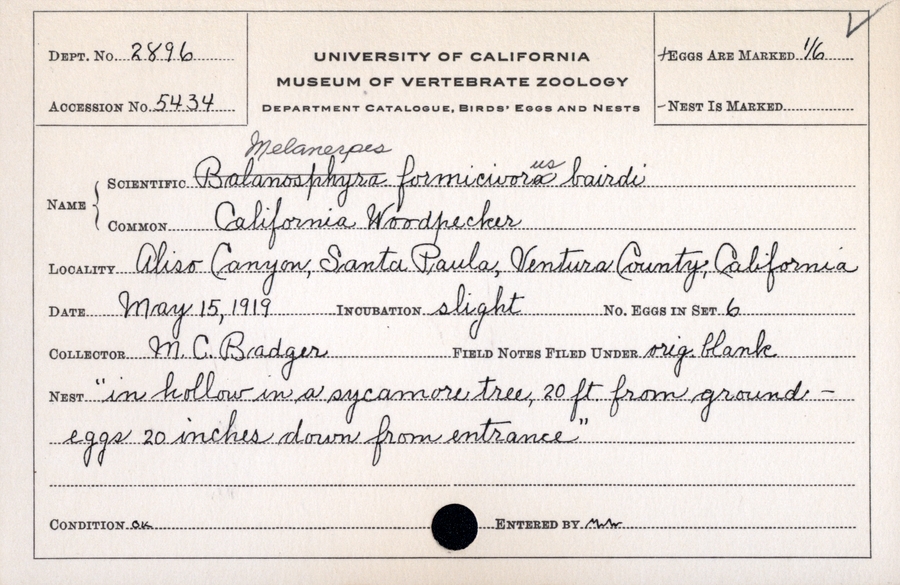 Dept. No. 2896
Accession No. 5434
UNIVERSITY OF CALIFORNIA
MUSEUM OF VERTEBRATE ZOOLOGY
Department Catalogue, Birds' Eggs and Nests
+Eggs Are Marked 1/6
-Nest Is Marked
Melanerpes
us
Name { Scientific Balanosphyra formicivora bairdi
Common California Woodpecker
Locality Aliso Canyon, Santa Paula, Ventura County, California
Date May 15, 1919 Incubation slight No. Eggs in Set 6
Collector M. C. Badger Field Notes Filed Under orig. blank
Nest "in hollow in a sycamore tree, 20 ft from ground -
eggs 20 inches down from entrance"
Condition ok Entered by